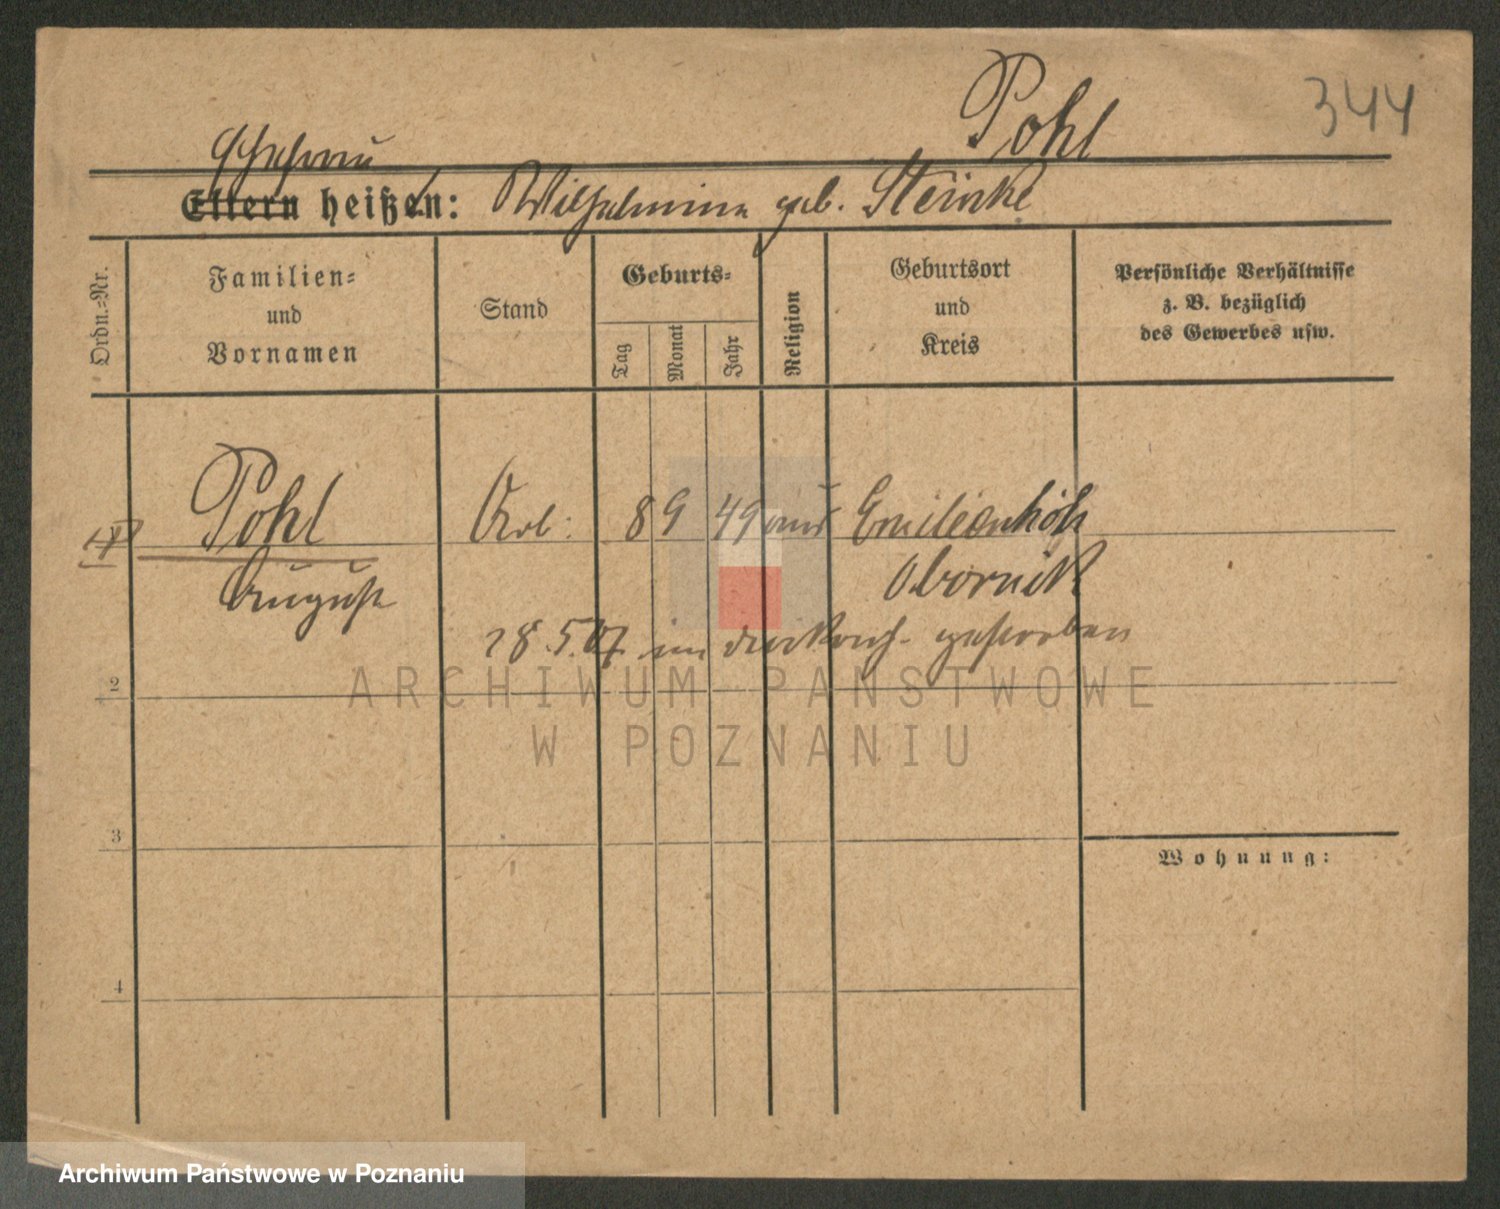 Pohl 344
Ehefrau
Eltern heißen: Wilhelmine geb. Steinke
Ordn.-Nr.
Familien-
und
Vornamen
Stand
Geburts-
Tag
Monat
Jahr
Religion
Geburtsort
und
Kreis
Persönliche Verhältnisse
z. B. bezüglich
des Gewerbes usw.
Pohl Arb: 8 9 49 Emilienhöh
August Obornik
28.5.07 im gestorben
2
ARCHIWUM PAŃSTWOWE
W POZNANIU
3
Wohnung:
4
Archiwum Państwowe w Poznaniu